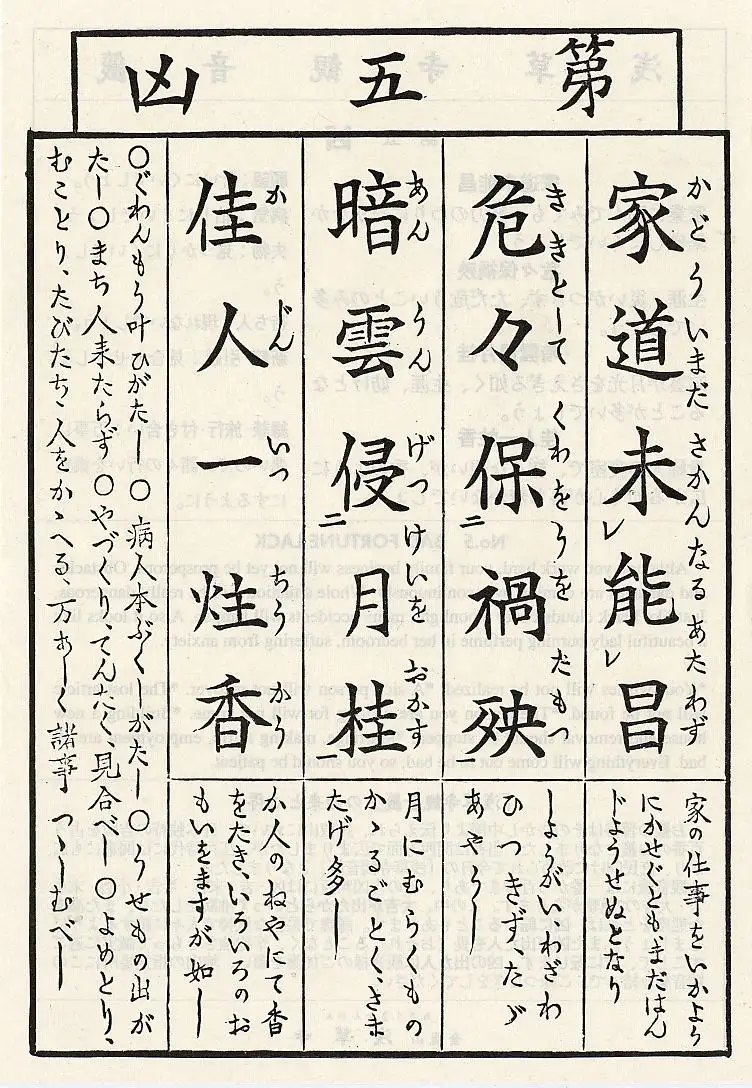 第五凶
家道未能昌
かどういまださかんなるあたわず
レ
レ
家の仕事をいかよう
にかせぐともまだはん
じようせぬとなり
危々保禍殃
ききとしてくわをうをたもつ
二
しようがいわざわ
ひつきずたゞ
あやうし
暗雲侵月桂
あんうんげつけいをおかす
二
月にむらくもの
かゝるごとくさま
たげ多し
佳人一炷香
かじんいつちうかう
か人のねやにて香
をたき、いろいろのお
もいをますが如し
〇ぐわんもう叶ひがたし〇病人本ぶくしがたし〇うせもの出が
たし〇まち人来たらず〇やづくりてんたく、見合べし〇よめとり、
むことり、たびたち、人をかゝへる、万あしく諸事つゝしむべし